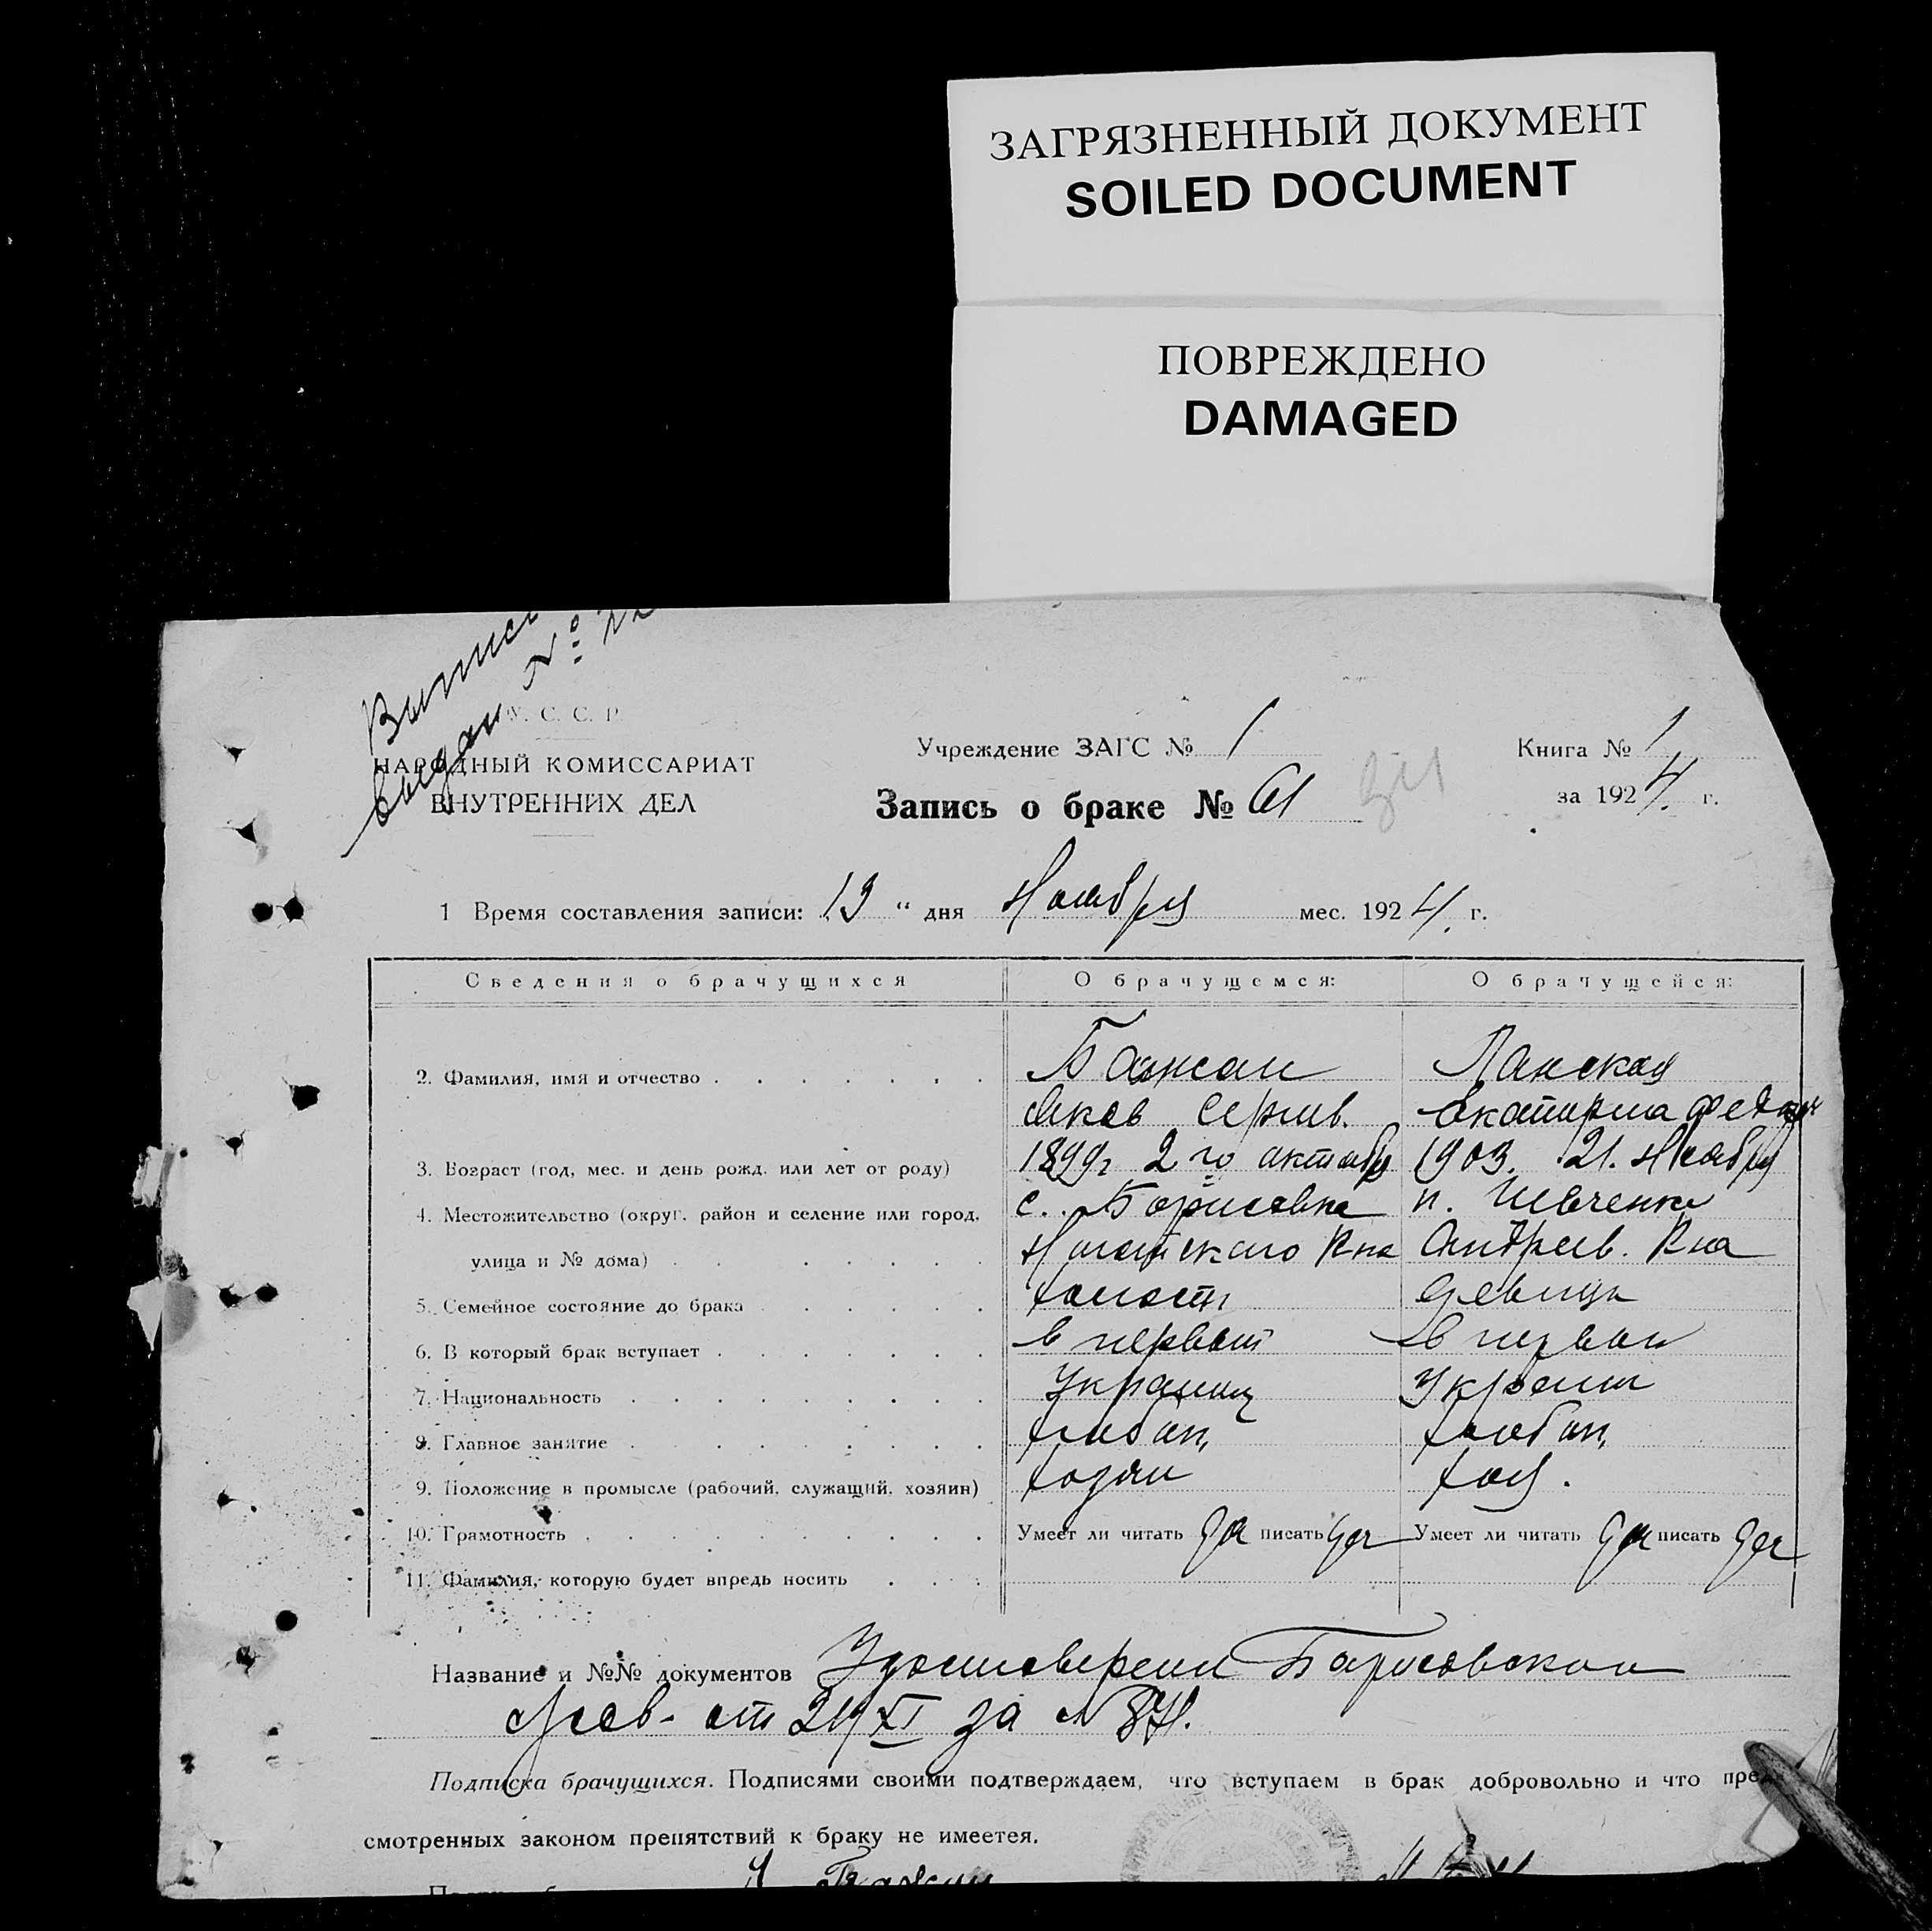 ЗАГРЯЗНЕННЫЙ ДОКУМЕНТ
SOILED DOCUMENT
ПОВРЕЖДЕНО
DAMAGED
выдан №
У. С. С. Р.
НАРОДНЫЙ КОМИССАРИАТ
ВНУТРЕННИХ ДЕЛ
Учреждение ЗАГС № 1
Книга № 1
Запись о браке № 61
за 1924 г.
1 Время составления записи: 13 " дня Ноября мес. 1924 г.
Сведения о брачущихся О брачущемся: О брачущейся:
2. Фамилия, имя и отчество Бажан Ланская
Яков Сергив. Екатирина Федор
3. Возраст (год, мес. и день рожд. или лет от роду) 1899г 2го актября 1903. 21. Ноября
4. Местожительство (округ, район и селение или город, с. Борисовка п. Шевченко
улица и № дома) Ногайского Рна Андреев. Рна
5. Семейное состояние до брака холост девица
6. В который брак вступает в первый в первый
7. Национальность Украинц Украин
8. Главное занятие хлибоп, хлебоп,
9. Положение в промысле (рабочий, служащий, хозяин) хозяин хоз.
10. Грамотность Умеет ли читать да писать да Умеет ли читать да писать да
11. Фамилия, которую будет впредь носить
Название и №№ документов Удостоверени Борисовской
от за № 84.
Подписка брачущихся. Подписями своими подтверждаем, что вступаем в брак добровольно и что пред
смотренных законом препятствий к браку не имеется.
Бажан